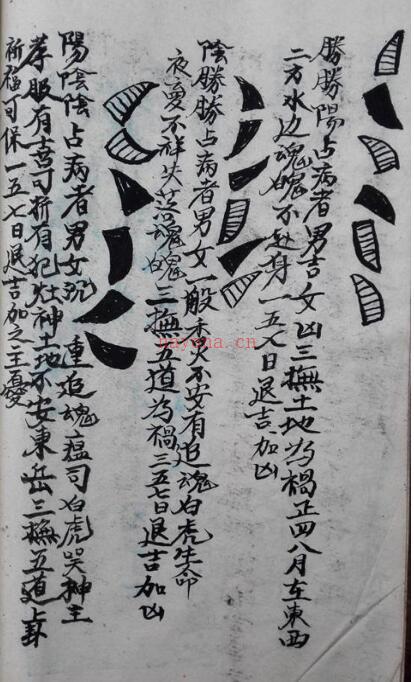 勝勝陽占病者男吉女凶三撫土地為禍正四八月在東西
二方水边魂魄不赴身一五七日退吉加凶
陰勝勝占病者男女一般未欠不安有追魂白虎生命
夜夢不祥失落魂魄三撫五道為禍三五七日退吉加凶
陽陰陰占病者男女沉重追魂瘟司白虎哭神主
孝服有喜可折有犯灶神土地不安東岳三撫五道上卦
祈福可保一五七日退吉加之主憂
nayona.cn